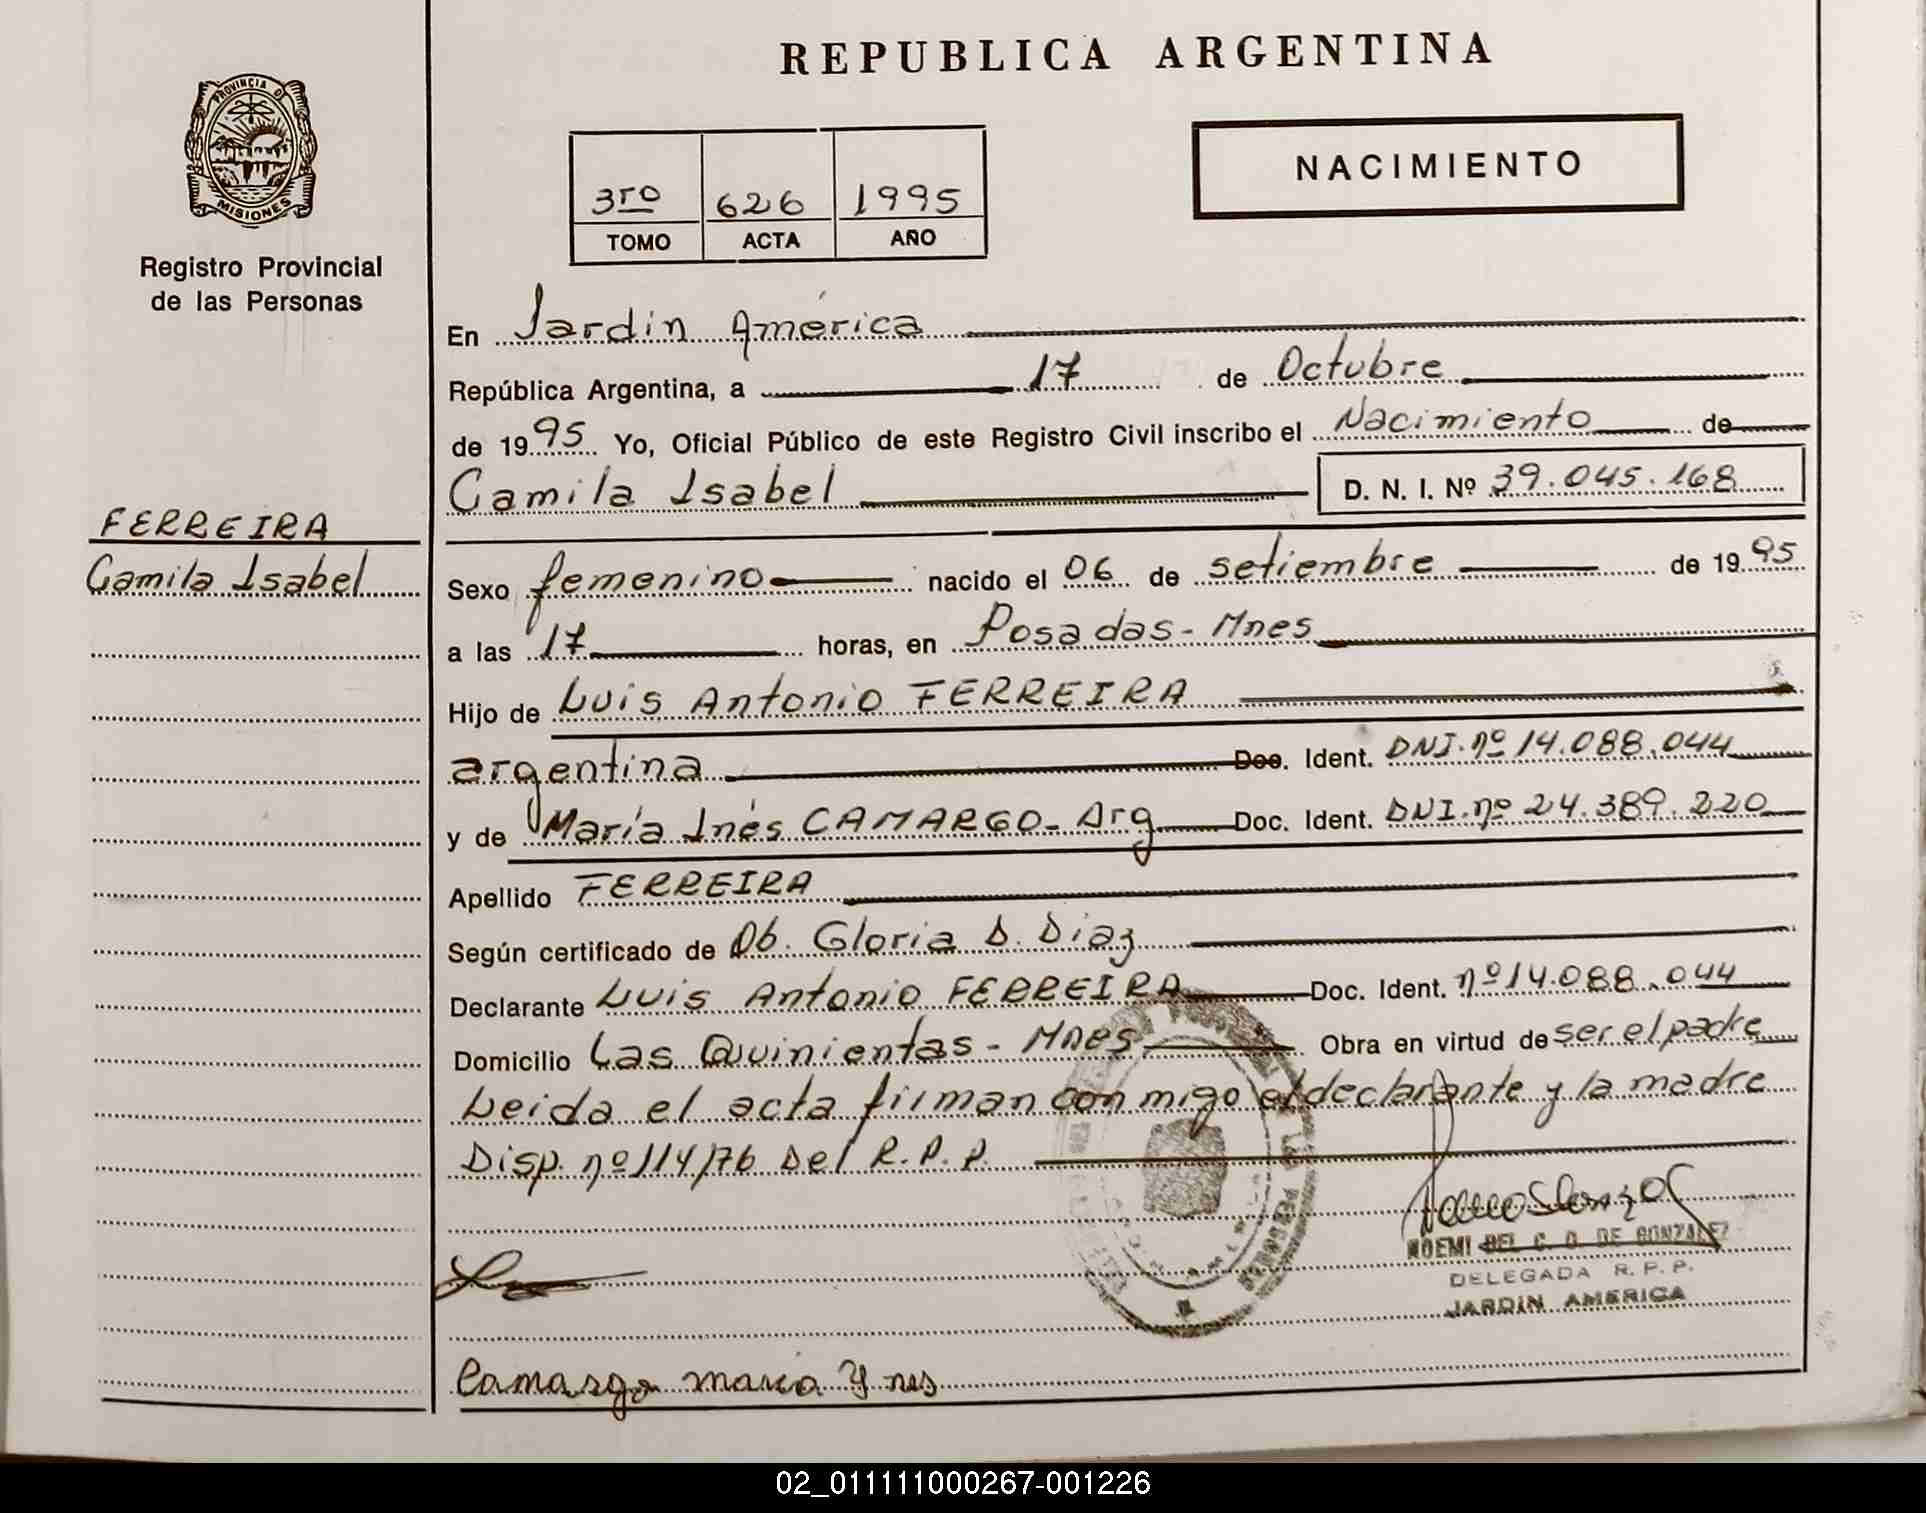 REPUBLICA ARGENTINA
PROVINCIA DE
MISIONES
Registro Provincial
de las Personas
3ro 626 1995
TOMO ACTA AÑO
NACIMIENTO
En Jardín América
República Argentina, a 17 de Octubre
de 1995 Yo, Oficial Público de este Registro Civil inscribo el Nacimiento de
Camila Isabel D. N. I. Nº 39.045.168
FERREIRA
Camila Isabel
Sexo femenino nacido el 06 de setiembre de 1995
a las 17 horas, en Posadas - Mnes
Hijo de Luis Antonio FERREIRA
argentina Doc. Ident. DNI. nº 14.088.044
y de María Inés CAMARGO - Arg Doc. Ident. DNI. nº 24.389.220
Apellido FERREIRA
Según certificado de Ob. Gloria D. Diaz
Declarante Luis Antonio FERREIRA Doc. Ident. nº 14.088.044
Domicilio Las Quinientas - Mnes Obra en virtud de ser el padre
Leida el acta firman con migo el declarante y la madre
Disp. nº 114/76 Del R. P. P.
NOEMI DEL C. O. DE GONZALEZ
DELEGADA R. P. P.
JARDIN AMERICA
Camargo maria Ynes
02_011111000267-001226